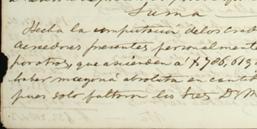 Suma
Hecha la computacion de los cred
acreedores presentes personalment
por otros, que ascienden a $ 706,619
haber mayoria absoluta en cantid
pues solo faltaron los tres D. M